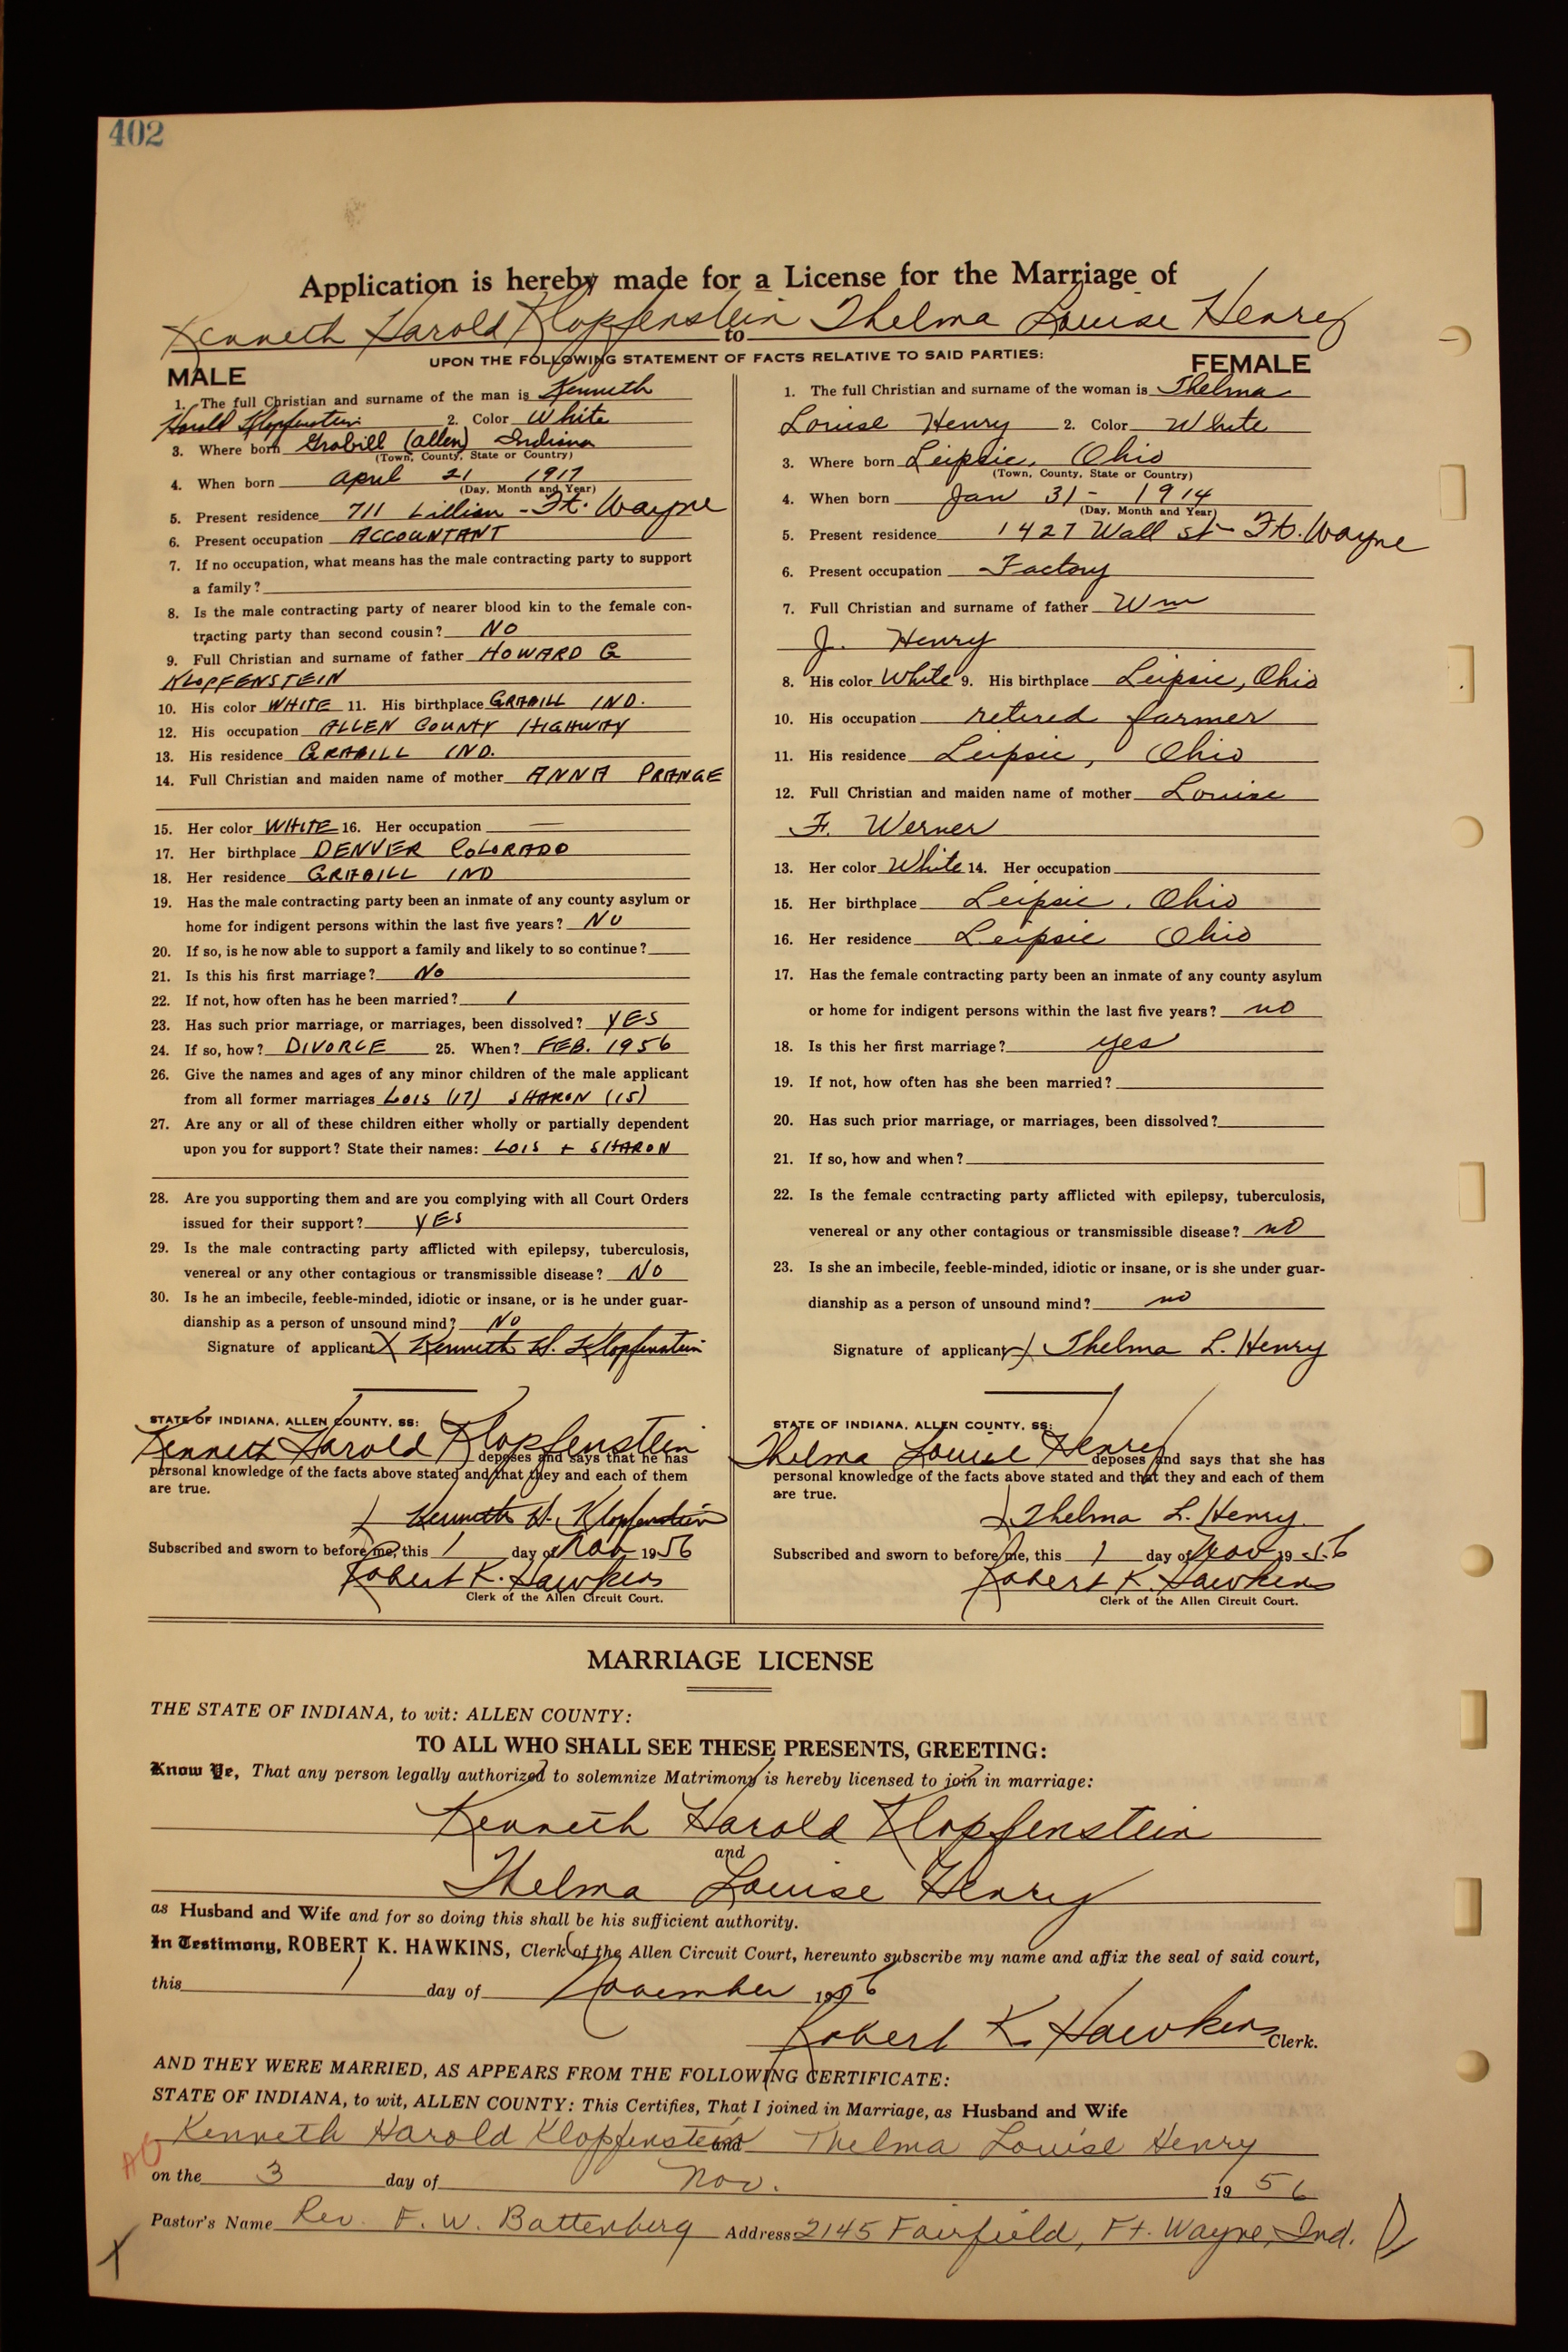 402
Application is hereby made for a License for the Marriage of
Kenneth Harold Klopfenstein to Thelma Louise Henry
UPON THE FOLLOWING STATEMENT OF FACTS RELATIVE TO SAID PARTIES:
MALE
1. The full Christian and surname of the man is Kenneth
Harold Klopfenstein 2. Color White
3. Where born Grabill (Allen) Indiana
(Town, County, State or Country)
4. When born April 21 1917
(Day, Month and Year)
5. Present residence 711 Lillian - Ft. Wayne
6. Present occupation ACCOUNTANT
7. If no occupation, what means has the male contracting party to support
a family?
8. Is the male contracting party of nearer blood kin to the female con-
tracting party than second cousin? NO
9. Full Christian and surname of father HOWARD G
KLOPFENSTEIN
10. His color WHITE 11. His birthplace GRABILL IND.
12. His occupation ALLEN COUNTY HIGHWAY
13. His residence GRABILL IND.
14. Full Christian and maiden name of mother ANNA PRANGE
15. Her color WHITE 16. Her occupation —
17. Her birthplace DENVER COLORADO
18. Her residence GRABILL IND
19. Has the male contracting party been an inmate of any county asylum or
home for indigent persons within the last five years? NO
20. If so, is he now able to support a family and likely to so continue?
21. Is this his first marriage? No
22. If not, how often has he been married? 1
23. Has such prior marriage, or marriages, been dissolved? YES
24. If so, how? DIVORCE 25. When? FEB. 1956
26. Give the names and ages of any minor children of the male applicant
from all former marriages LOIS (17) SHARON (15)
27. Are any or all of these children either wholly or partially dependent
upon you for support? State their names: LOIS + SHARON
28. Are you supporting them and are you complying with all Court Orders
issued for their support? YES
29. Is the male contracting party afflicted with epilepsy, tuberculosis,
venereal or any other contagious or transmissible disease? NO
30. Is he an imbecile, feeble-minded, idiotic or insane, or is he under guar-
dianship as a person of unsound mind? NO
Signature of applicant X Kenneth H. Klopfenstein
STATE OF INDIANA, ALLEN COUNTY, SS:
Kenneth Harold Klopfenstein deposes and says that he has
personal knowledge of the facts above stated and that they and each of them
are true.
X Kenneth H. Klopfenstein
Subscribed and sworn to before me, this 1 day of Nov 1956
Robert K. Hawkins
Clerk of the Allen Circuit Court.
FEMALE
1. The full Christian and surname of the woman is Thelma
Louise Henry 2. Color White
3. Where born Leipsic, Ohio
(Town, County, State or Country)
4. When born Jan 31 - 1914
(Day, Month and Year)
5. Present residence 1427 Wall St - Ft. Wayne
6. Present occupation Factory
7. Full Christian and surname of father Wm
J. Henry
8. His color White 9. His birthplace Leipsic, Ohio
10. His occupation retired farmer
11. His residence Leipsic, Ohio
12. Full Christian and maiden name of mother Louise
F. Werner
13. Her color White 14. Her occupation
15. Her birthplace Leipsic, Ohio
16. Her residence Leipsic Ohio
17. Has the female contracting party been an inmate of any county asylum
or home for indigent persons within the last five years? no
18. Is this her first marriage? yes
19. If not, how often has she been married?
20. Has such prior marriage, or marriages, been dissolved?
21. If so, how and when?
22. Is the female contracting party afflicted with epilepsy, tuberculosis,
venereal or any other contagious or transmissible disease? no
23. Is she an imbecile, feeble-minded, idiotic or insane, or is she under guar-
dianship as a person of unsound mind? no
Signature of applicant X Thelma L. Henry
STATE OF INDIANA, ALLEN COUNTY, SS:
Thelma Louise Henry deposes and says that she has
personal knowledge of the facts above stated and that they and each of them
are true.
X Thelma L. Henry
Subscribed and sworn to before me, this 1 day of Nov 1956
Robert K. Hawkins
Clerk of the Allen Circuit Court.
MARRIAGE LICENSE
THE STATE OF INDIANA, to wit: ALLEN COUNTY:
TO ALL WHO SHALL SEE THESE PRESENTS, GREETING:
Know Ye, That any person legally authorized to solemnize Matrimony is hereby licensed to join in marriage:
Kenneth Harold Klopfenstein
and
Thelma Louise Henry
as Husband and Wife and for so doing this shall be his sufficient authority.
In Testimony, ROBERT K. HAWKINS, Clerk of the Allen Circuit Court, hereunto subscribe my name and affix the seal of said court,
this 1 day of November 1956
Robert K. Hawkins Clerk.
AND THEY WERE MARRIED, AS APPEARS FROM THE FOLLOWING CERTIFICATE:
STATE OF INDIANA, to wit, ALLEN COUNTY: This Certifies, That I joined in Marriage, as Husband and Wife
Kenneth Harold Klopfenstein and Thelma Louise Henry
on the 3 day of Nov. 1956
Pastor's Name Rev. F. W. Battenberg Address 2145 Fairfield, Ft. Wayne, Ind.